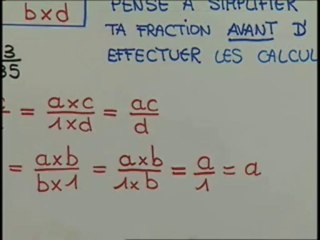 b x d
PENSE À SIMPLIFIER
TA FRACTION AVANT D'
EFFECTUER LES CALCUL
3
35
= a x c / 1 x d = ac / d
= a x b / b x 1 = a x b / 1 x b = a / 1 = a